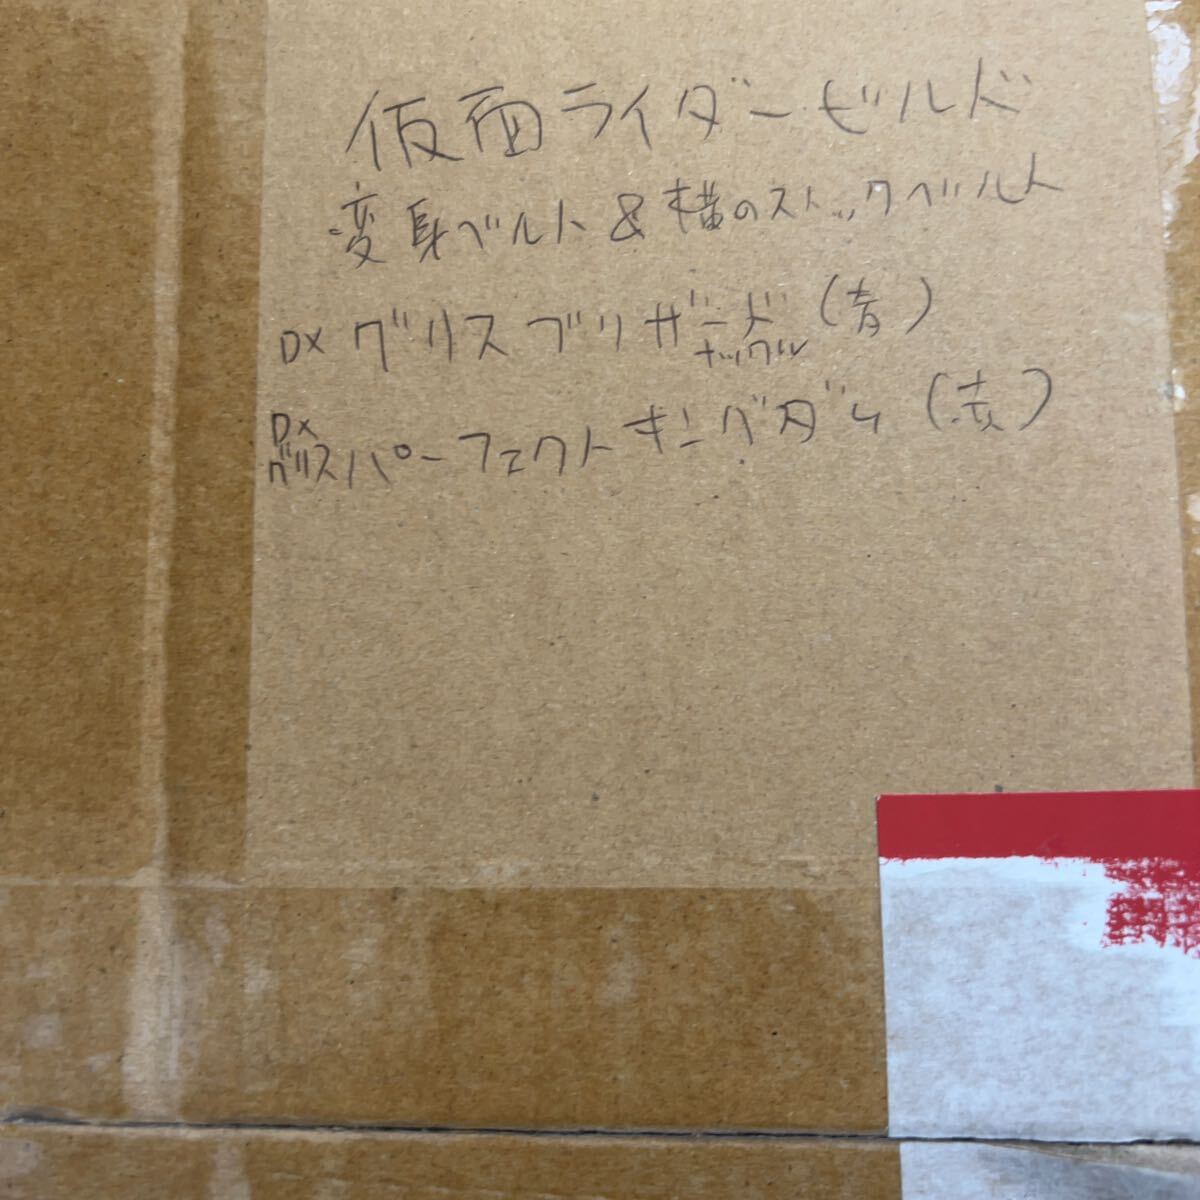 仮面ライダービルド
変身ベルト&横のストックベルト
DX グリスブリザード(青)
ナックル
DX
グリスパーフェクトキングダム(赤)